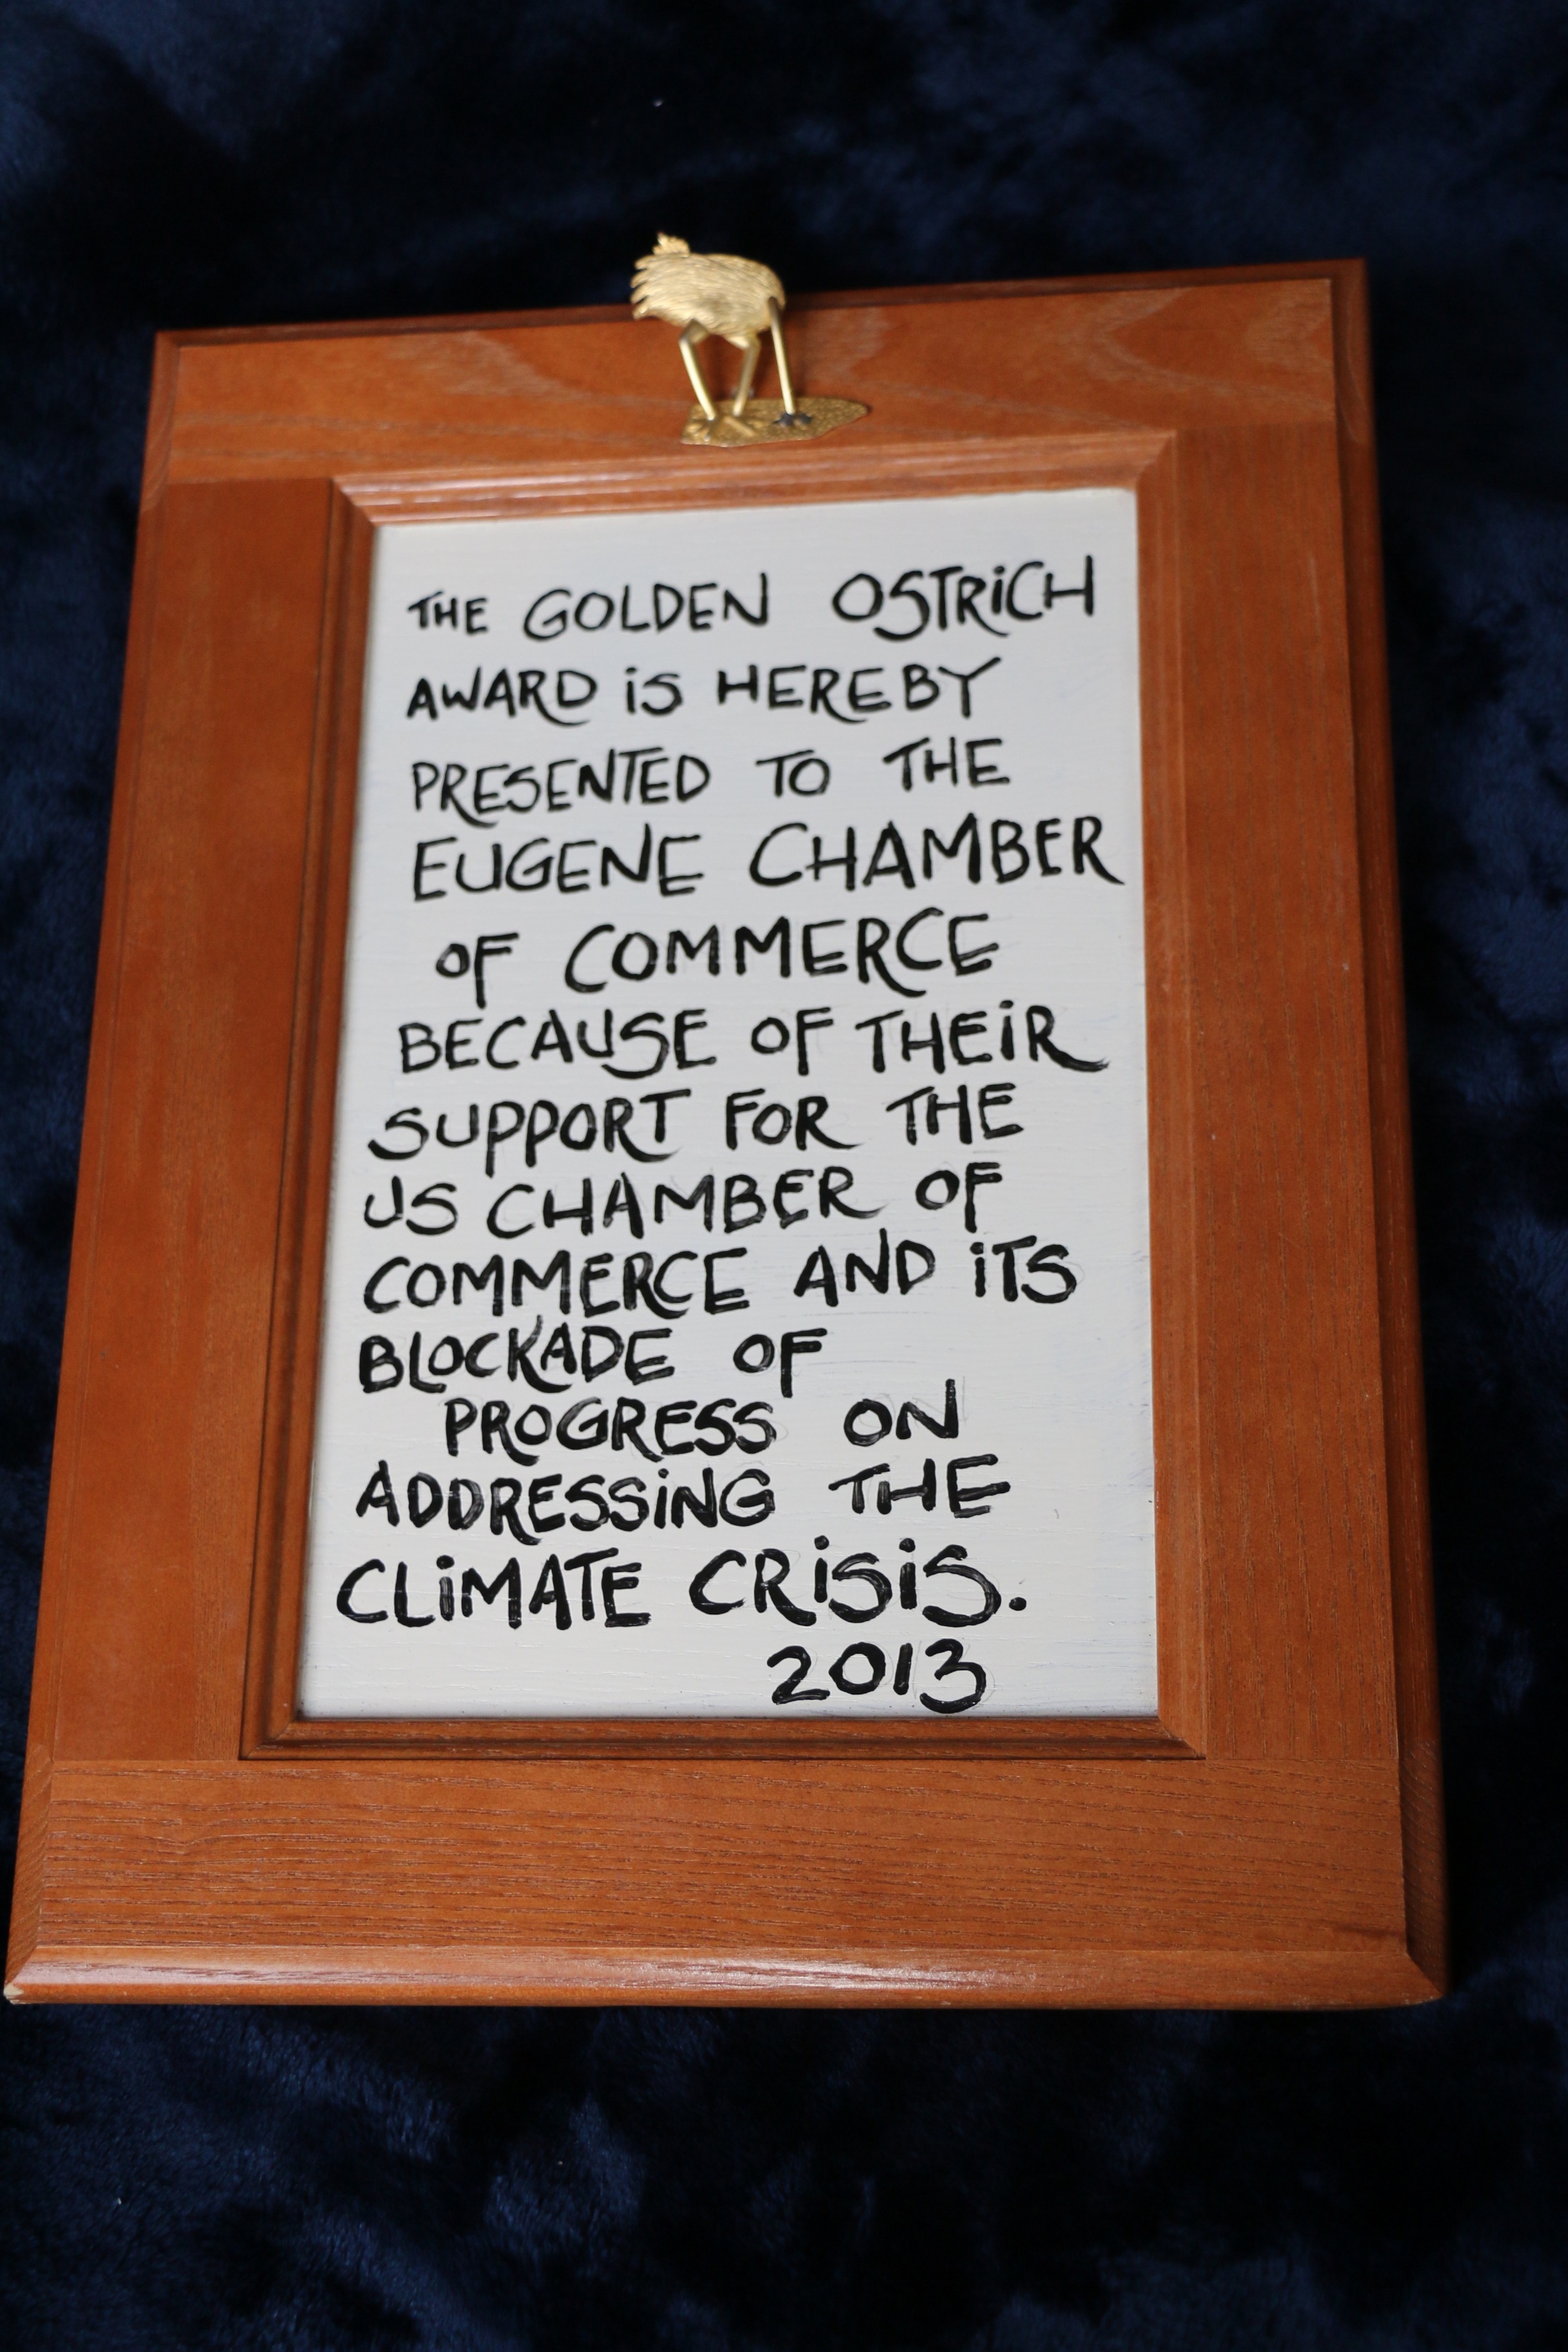 THE GOLDEN OSTRiCH
AWARD iS HEREBY
PRESENTED TO THE
EUGENE CHAMBER
OF COMMERCE
BECAUSE OF THEiR
SUPPORT FOR THE
US CHAMBER OF
COMMERCE AND iTS
BLOCKADE OF
PROGRESS ON
ADDRESSiNG THE
CLiMATE CRiSiS.
2013